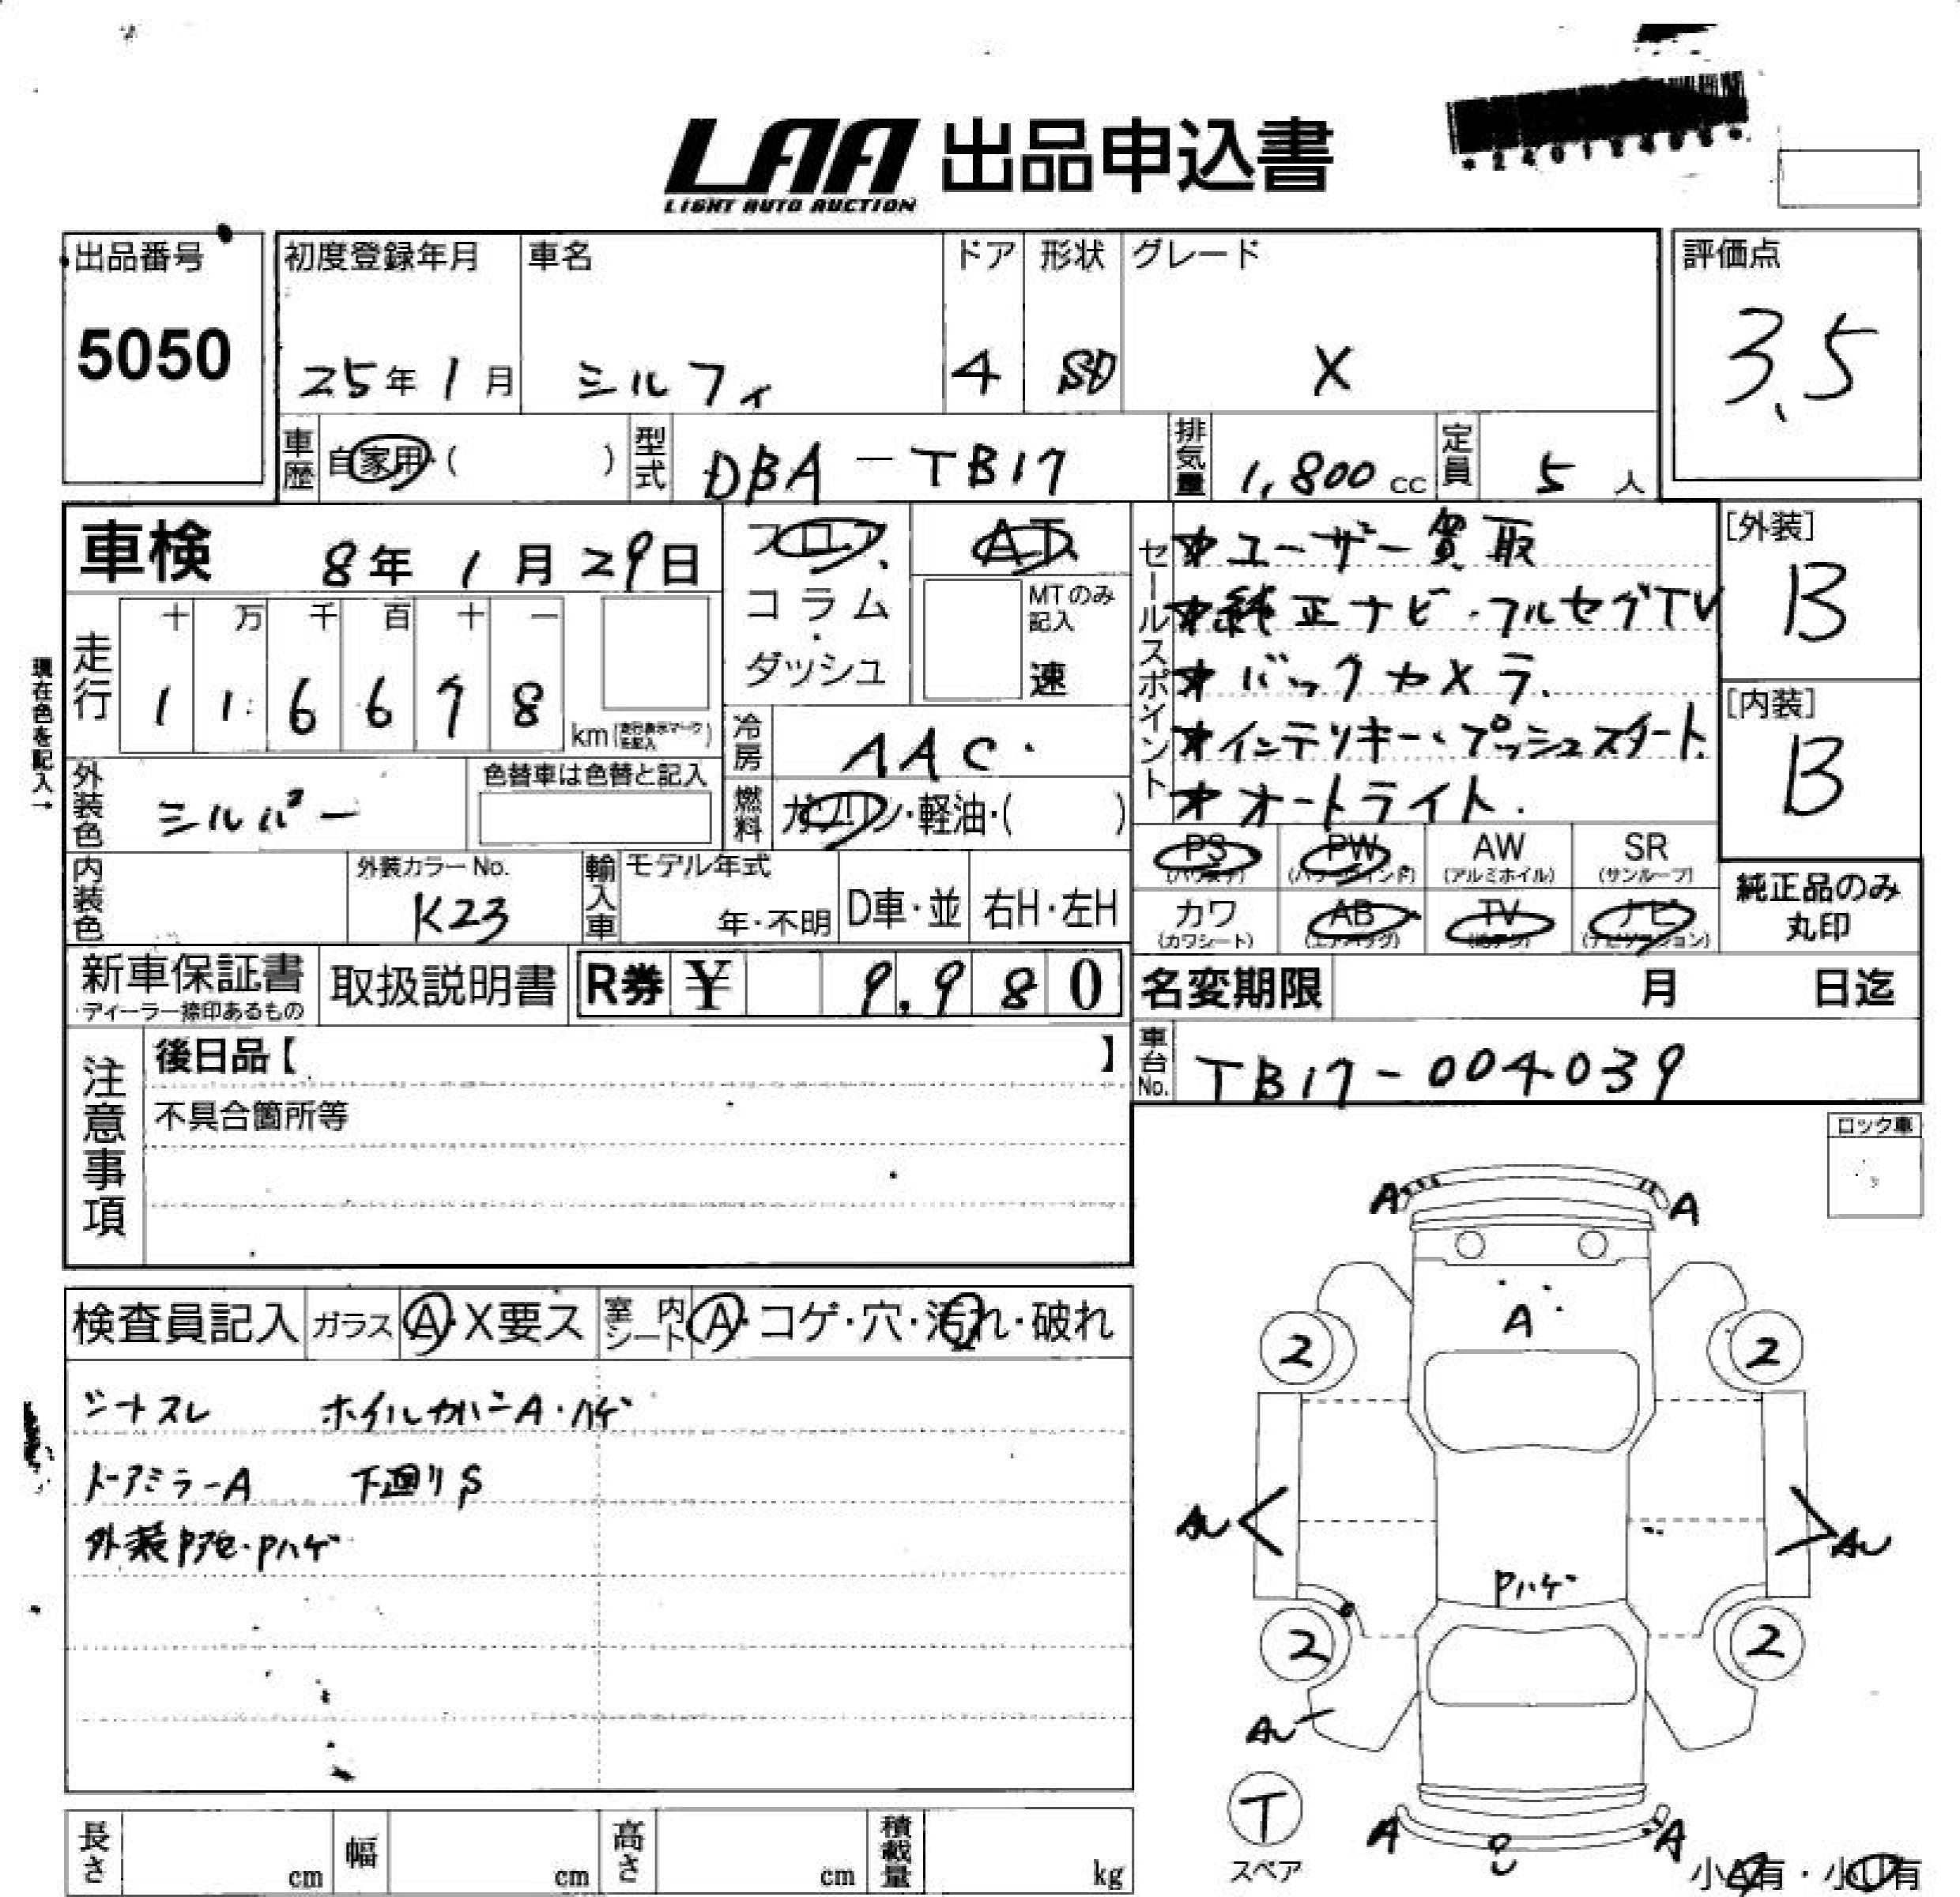 LAA 出品申込書
LIGHT AUTO AUCTION
*24012405*
出品番号
5050
初度登録年月
25年1月
車名
シルフィ
ドア
4
形状
SD
グレード
X
評価点
3.5
車歴
自家用・( )
型式
DBA-TB17
排気量
1,800cc
定員
5人
車検 8年1月29日
フロア
コラム
・
ダッシュ
AT
MTのみ記入
速
セールスポイント
★ユーザー買取
★純正ナビ・フルセグTV
★バックカメラ.
★インテリキー・プッシュスタート.
★オートライト.
[外装]
B
[内装]
B
現在色を記入→
走行
十 万 千 百 十 一
1 1 6 6 7 8 km
冷房
AAC
外装色
シルバー
色替車は色替と記入
燃料
ガソリン・軽油・( )
PS
(パワステ)
PW
(パワーウインド)
AW
(アルミホイル)
SR
(サンルーフ)
内装色
外装カラーNo.
K23
輸入車
モデル年式
年・不明
D車・並
右H・左H
カワ
(カワシート)
AB
(エアバッグ)
TV
ナビ
(ナビゲーション)
純正品のみ
丸印
新車保証書
・ディーラー捺印あるもの
取扱説明書
R券 ¥ 9,980
名変期限 月 日迄
注意事項
後日品【 】
不具合箇所等
車台No.
TB17-004039
ロック車
検査員記入
ガラス
A・X要ス
室内シート
A・コゲ・穴・汚れ・破れ
シートスレ ホイルカバーA・ハゲ
ドアミラーA 下廻りS
外装P・Pハゲ
A A
A
2 2
AU AU
Pハゲ
2 2
AU
T
スペア
A A
小A有・小U有
長さ cm
幅 cm
高さ cm
積載量 kg